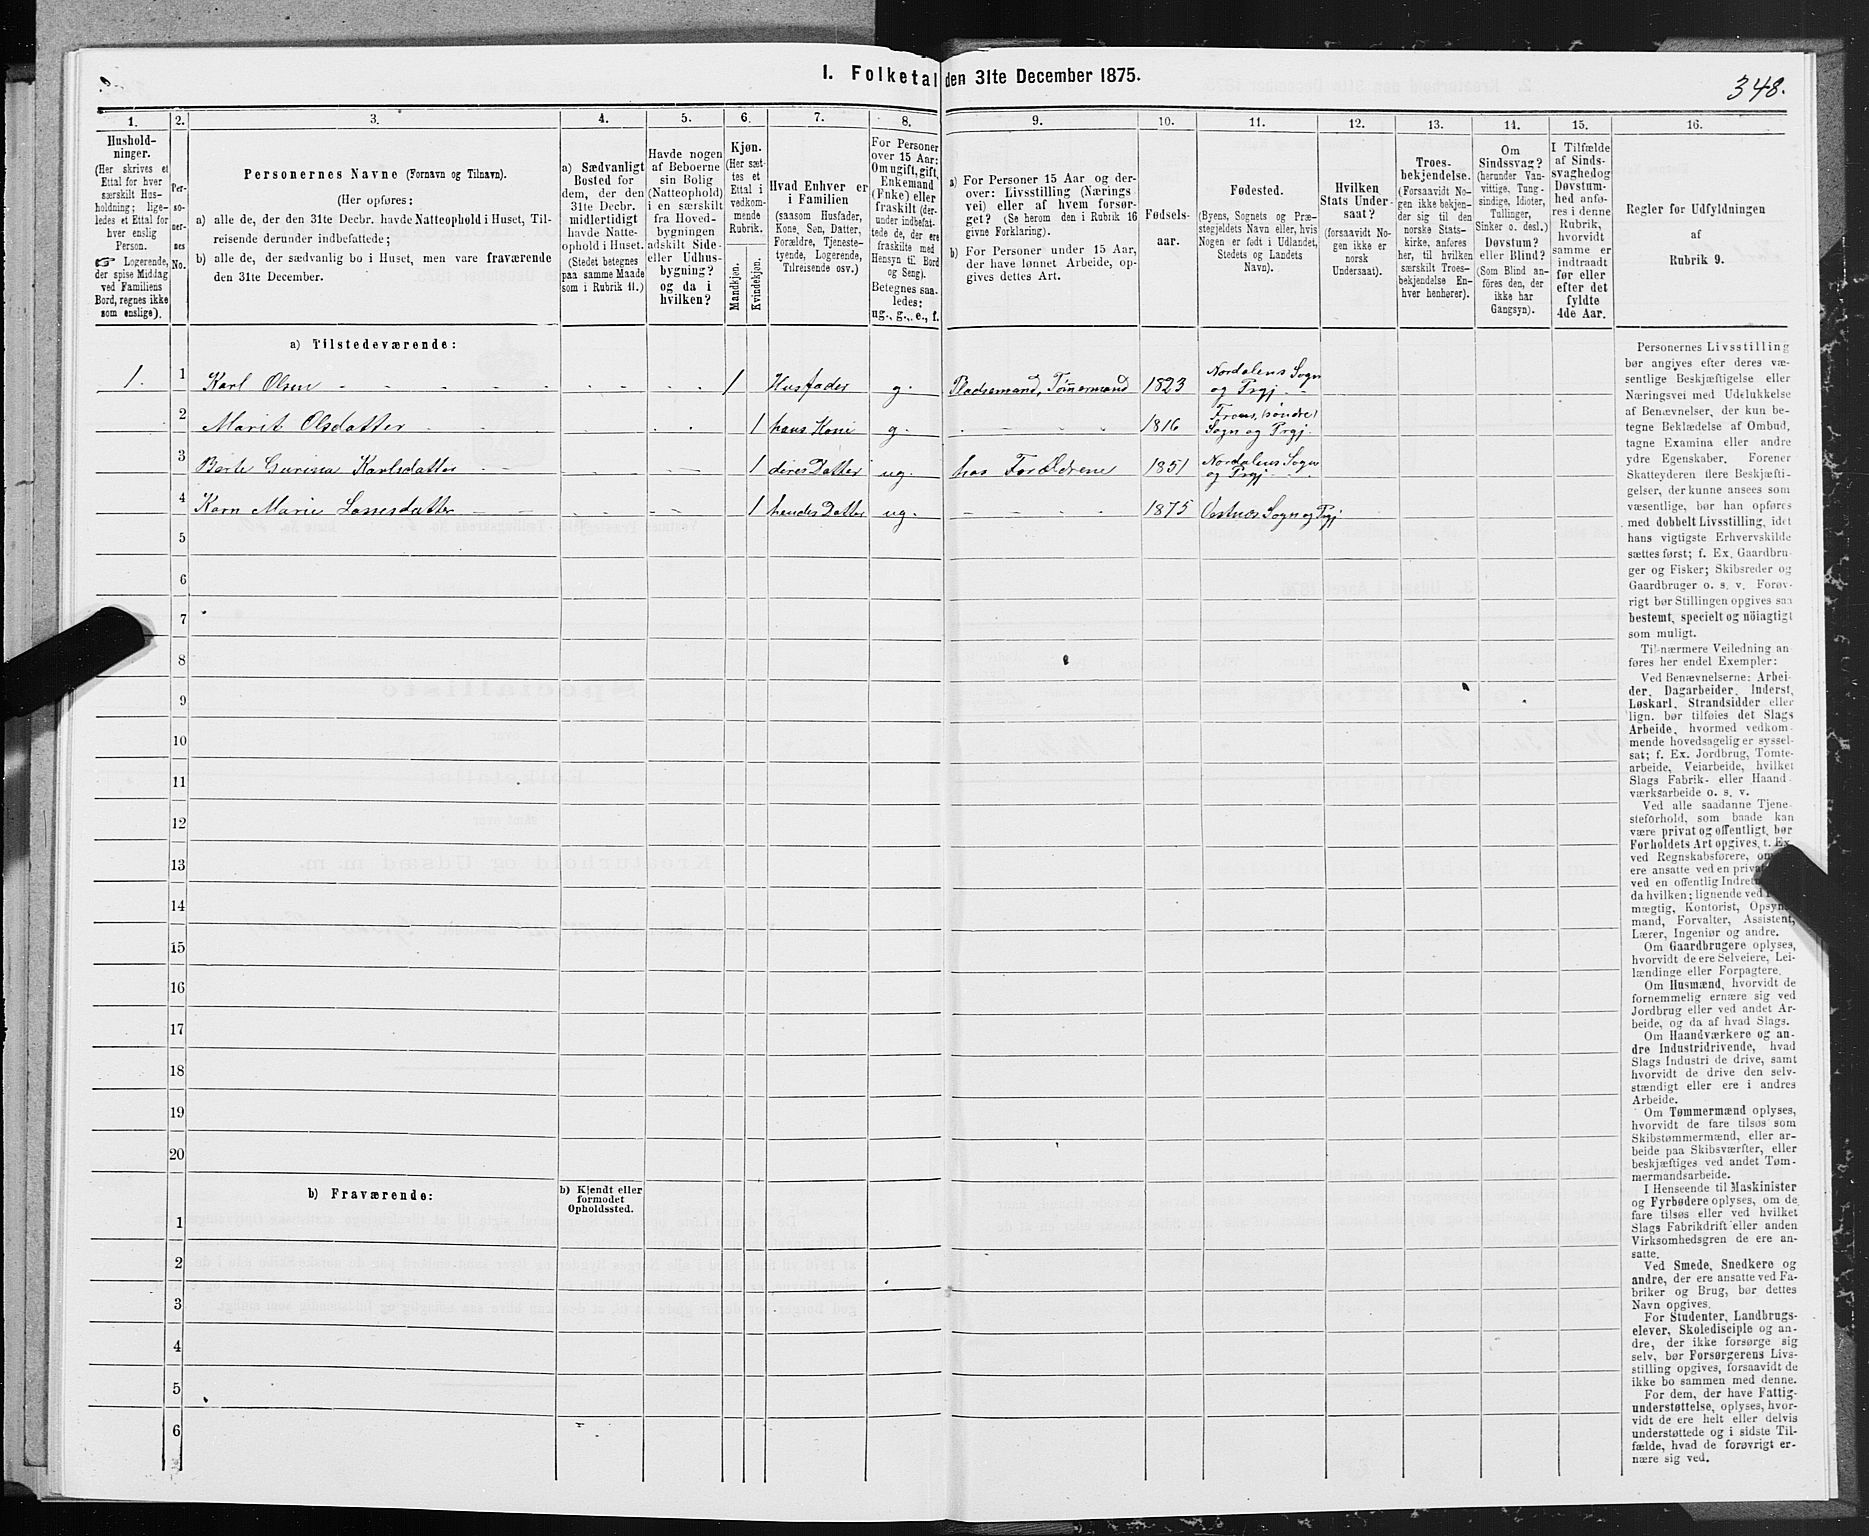 I. Folketal den 31te December 1875.
348.
1.
Hushold-
ninger.
(Her skrives et
Ettal for hver
særskilt Hus-
holdning; lige-
ledes et Ettal for
hver enslig
Person.
☞ Logerende,
der spise Middag
ved Familiens
Bord, regnes ikke
som enslige).
2.
Per-
so-
ner-
nes
No.
3.
Personernes Navne (Fornavn og Tilnavn).
(Her opføres:
a) alle de, der den 31te Decbr. havde Natteophold i Huset, Til-
reisende derunder indbefattede;
b) alle de, der sædvanlig bo i Huset, men vare fraværende
den 31te December.
4.
a) Sædvanligt
Bosted for
dem, der den
31te Decbr.
midlertidigt
havde Natte-
ophold i Huset.
(Stedet betegnes
paa samme Maade
som i Rubrik 11.)
5.
Havde nogen
af Beboerne
sin Bolig
(Natteophold)
i en særskilt
fra Hoved-
bygningen
adskilt Side-
eller Udhus-
bygning?
og da i
hvilken?
6.
Kjøn.
(Her sæt-
tes et
Ettal i
vedkom-
mende
Rubrik.
Mandkjøn.
Kvindekjøn.
7.
Hvad Enhver er
i Familien
(saasom Husfader,
Kone, Søn, Datter,
Forældre, Tjeneste-
tyende, Logerende,
Tilreisende osv.)
8.
For Personer
over 15 Aar:
Om ugift, gift,
Enkemand
(Enke) eller
fraskilt (der-
under indbefat-
tede de, der ere
fraskilte med
Hensyn til Bord
og Seng).
Betegnes saa-
ledes:
ug., g., e., f.
9.
a) For Personer 15 Aar og der-
over: Livsstilling (Nærings-
vei) eller af hvem forsør-
get? (Se herom den i Rubrik 16
givne Forklaring).
b) For Personer under 15 Aar,
der have lønnet Arbeide, op-
gives dettes Art.
10.
Fødsels-
aar.
11.
Fødested.
(Byens, Sognets og Præ-
stegjeldets Navn eller, hvis
Nogen er født i Udlandet,
Stedets og Landets
Navn).
12.
Hvilken
Stats Under-
saat?
(forsaavidt No-
gen ikke er
norsk
Undersaat).
13.
Troes-
bekjendelse.
(Forsaavidt No-
gen ikke bekjen-
der sig til den
norske Stats-
kirke, anføres
her, til hvilken
særskilt Troes-
bekjendelse En-
hver henhører).
14.
Om
Sindssvag?
(herunder Van-
vittige, Tung-
sindige, Idioter,
Tullinger,
Sinker o. desl.)
Døvstum?
eller Blind?
(Som Blind an-
føres den, der
ikke har
Gangsyn).
15.
I Tilfælde
af Sinds-
svaghed og
Døvstum-
hed anfø-
res i denne
Rubrik,
hvorvidt
samme er
indtraadt
før eller
efter det
fyldte
4de Aar.
16.
Regler for Udfyldningen
af
Rubrik 9.
a) Tilstedeværende:
1. 1 Karl Olsen 1 Husfader g. Pladsemand, Tømmermand 1823 Nordalens Sogn
og Prgj
2 Marit Olsdatter 1 hans Kone g. 1816 (søndre)
Sogn og Prgj.
3 Berte Gurina Karlsdatter 1 deres Datter ug. hos Forældrene 1851 Nordalens Sogn
og Prgj
4 Karn Marie Lassesdatter 1 hendes Datter ug. 1875 Vestnæs Sogn og Prgj
5
6
7
8
9
10
11
12
13
14
15
16
17
18
19
20
b) Fraværende:
b) Kjendt eller
formodet
Opholdssted.
1
2
3
4
5
6
Personernes Livsstilling
bør angives efter deres væ-
sentlige Beskjæftigelse eller
Næringsvei med Udelukkelse
af Benævnelser, der kun be-
tegne Beklædelse af Ombud,
tagne Examina eller andre
ydre Egenskaber. Forener
Skatteyderen flere Beskjæfti-
gelser, der kunne ansees som
væsentlige, bør han opføres
med dobbelt Livsstilling, idet
hans vigtigste Erhvervskilde
sættes først; f. Ex. Gaardbru-
ger og Fisker; Skibsreder og
Gaardbruger o. s. v. Forøv-
rigt bør Stillingen opgives saa
bestemt, specielt og nöiagtigt
som muligt.
Til nærmere Veiledning an-
føres her endel Exempler:
Ved Benævnelserne: Arbei-
der, Dagarbeider, Inderst,
Løskarl, Strandsidder eller
lign. bør tilføies det Slags
Arbeide, hvormed vedkom-
mende hovedsagelig er syssel-
sat; f. Ex. Jordbrug, Tomte-
arbeide, Veiarbeide, hvilket
Slags Fabrik- eller Haand-
værksarbeide o. s. v.
Ved alle saadanne Tjene-
steforhold, som baade kan
være privat og offentligt, bør
Forholdets Art opgives, t. Ex.
ved Regnskabsførere, om
ere ansatte ved en privat
ved en offentlig Indret
da hvilken; lignende ved
mægtig, Kontorist, Opsyns-
mand, Forvalter, Assistent,
Lærer, Ingeniør og andre.
Om Gaardbrugere oplyses,
hvorvidt de ere Selveiere, Lei-
lændinge eller Forpagtere.
Om Husmænd, hvorvidt de
fornemmelig ernære sig ved
Jordbrug eller ved andet Ar-
beide, og da af hvad Slags.
Om Haandværkere og an-
dre Industridrivende, hvad
Slags Industri de drive, samt
hvorvidt de drive den selv-
stændigt eller ere i andres
Arbeide.
Om Tømmermænd oplyses,
hvorvidt de fare tilsøs som
Skibstømmermænd, eller ar-
beide paa Skibsværfter, eller
beskjæftiges ved andet Tøm-
mermandsarbeide.
I Henseende til Maskinister
og Fyrbødere oplyses, om de
fare tilsøs eller ved hvilket
Slags Fabrikdrift eller anden
Virksomhedsgren de ere an-
satte.
Ved Smede, Snedkere og
andre, der ere ansatte ved Fa-
briker og Brug, bør dettes
Navn opgives.
For Studenter, Landbrugs-
elever, Skoledisciple og an-
dre, der ikke forsørge sig
selv, bør Forsørgerens Livs-
stilling opgives, forsaavidt de
ikke bo sammen med denne.
For dem, der have Fattig-
understøttelse, oplyses, hvor-
vidt de ere helt eller delvis
understøttede og i sidste Til-
fælde, hvad de forøvrigt er-
nære sig ved.